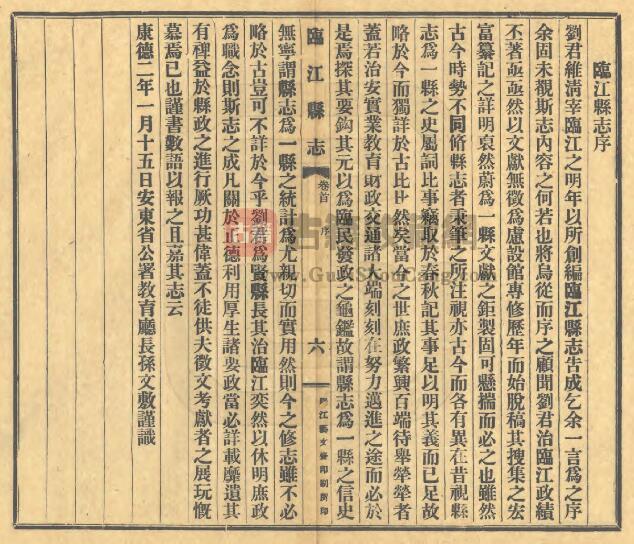 臨江縣志序
劉君維清宰臨江之明年以所創編臨江縣志告成乞余一言爲之序
余固未覩斯志內容之何若也將烏從而序之顧聞劉君治臨江政績
丕著亟亟然以文獻無徵爲慮設館專修歷年而始脫稿其搜集之宏
富纂記之詳明裒然蔚爲一縣文獻之鉅製固可懸揣而必之也雖然
古今時勢不同脩縣志者秉筆之所注視亦古今而各有異在昔視縣
志爲一縣之史屬詞比事竊取於春秋記其事足以明其義而已足故
略於今而獨詳於古比比然矣當今之世庶政繁興百端待舉犖犖者
蓋若治安實業教育財政交通諸大端刻刻在努力邁進之途而必於
是焉探其要鈎其元以爲臨民發政之龜鑑故謂縣志爲一縣之信史
臨江縣志
卷首 序
六
江藝文齋印刷所印
無寧謂縣志爲一縣之統計爲尤親切而實用然則今之修志雖不必
略於古豈可不詳於今乎劉君爲賢縣長其治臨江奕然以休明庶政
爲職念則斯志之成凡關於正德利用厚生諸要政當必詳載靡遺其
有裨益於縣政之進行厥功甚偉蓋不徒供夫徵文考獻者之展玩慨
慕焉已也謹書數語以報之且嘉其志云
康德二年一月十五日安東省公署教育廳長孫文敷謹識
古籍收藏網
www.GuJiShouCang.com